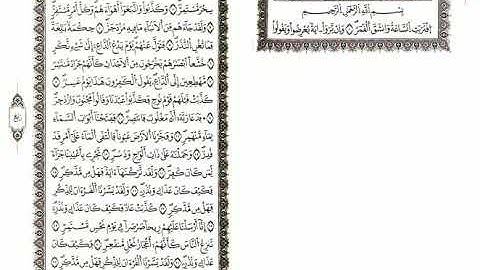 بِسْمِ ٱللَّهِ ٱلرَّحْمَٰنِ ٱلرَّحِيمِ
ٱقْتَرَبَتِ ٱلسَّاعَةُ وَٱنشَقَّ ٱلْقَمَرُ ۝ وَإِن يَرَوْا۟ ءَايَةً يُعْرِضُوا۟ وَيَقُولُوا۟
سِحْرٌ مُّسْتَمِرٌّ ۝ وَكَذَّبُوا۟ وَٱتَّبَعُوٓا۟ أَهْوَآءَهُمْ وَكُلُّ أَمْرٍ مُّسْتَقِرٌّ
۝ وَلَقَدْ جَآءَهُم مِّنَ ٱلْأَنۢبَآءِ مَا فِيهِ مُزْدَجَرٌ ۝ حِكْمَةٌۢ بَٰلِغَةٌ
فَمَا تُغْنِ ٱلنُّذُرُ ۝ فَتَوَلَّ عَنْهُمْ يَوْمَ يَدْعُ ٱلدَّاعِ إِلَىٰ شَىْءٍ نُّكُرٍ
۝ خُشَّعًا أَبْصَٰرُهُمْ يَخْرُجُونَ مِنَ ٱلْأَجْدَاثِ كَأَنَّهُمْ جَرَادٌ مُّنتَشِرٌ
۝ مُّهْطِعِينَ إِلَى ٱلدَّاعِ يَقُولُ ٱلْكَٰفِرُونَ هَٰذَا يَوْمٌ عَسِرٌ ۝
كَذَّبَتْ قَبْلَهُمْ قَوْمُ نُوحٍ فَكَذَّبُوا۟ عَبْدَنَا وَقَالُوا۟ مَجْنُونٌ وَٱزْدُجِرَ
۝ فَدَعَا رَبَّهُۥٓ أَنِّى مَغْلُوبٌ فَٱنتَصِرْ ۝ فَفَتَحْنَآ أَبْوَٰبَ ٱلسَّمَآءِ
بِمَآءٍ مُّنْهَمِرٍ ۝ وَفَجَّرْنَا ٱلْأَرْضَ عُيُونًا فَٱلْتَقَى ٱلْمَآءُ عَلَىٰٓ أَمْرٍ قَدْ
قُدِرَ ۝ وَحَمَلْنَٰهُ عَلَىٰ ذَاتِ أَلْوَٰحٍ وَدُسُرٍ ۝ تَجْرِى بِأَعْيُنِنَا جَزَآءً
لِّمَن كَانَ كُفِرَ ۝ وَلَقَد تَّرَكْنَٰهَآ ءَايَةً فَهَلْ مِن مُّدَّكِرٍ ۝
فَكَيْفَ كَانَ عَذَابِى وَنُذُرِ ۝ وَلَقَدْ يَسَّرْنَا ٱلْقُرْءَانَ لِلذِّكْرِ
فَهَلْ مِن مُّدَّكِرٍ ۝ كَذَّبَتْ عَادٌ فَكَيْفَ كَانَ عَذَابِى وَنُذُرِ
۝ إِنَّآ أَرْسَلْنَا عَلَيْهِمْ رِيحًا صَرْصَرًا فِى يَوْمِ نَحْسٍ مُّسْتَمِرٍّ ۝
تَنزِعُ ٱلنَّاسَ كَأَنَّهُمْ أَعْجَازُ نَخْلٍ مُّنقَعِرٍ ۝ فَكَيْفَ كَانَ
عَذَابِى وَنُذُرِ ۝ وَلَقَدْ يَسَّرْنَا ٱلْقُرْءَانَ لِلذِّكْرِ فَهَلْ مِن مُّدَّكِرٍ ۝
ربع